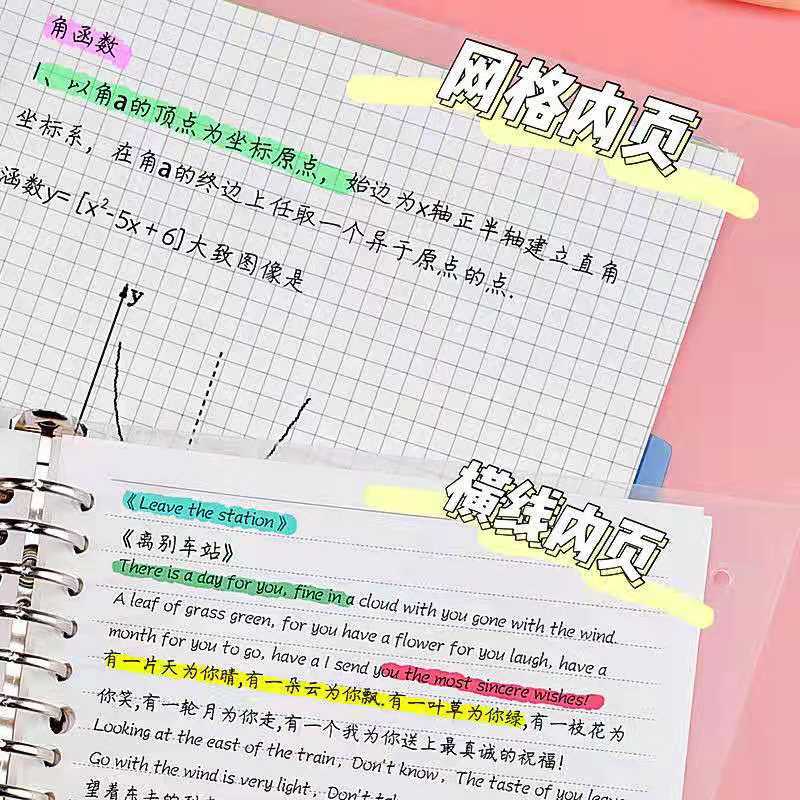 角函数
网格内页
1、以角a的顶点为坐标原点，始边为x轴正半轴建立直角
坐标系，在角a的终边上任取一个异于原点的点.
涵数y=[x²-5x+6]大致图像是
y
横线内页
《Leave the station》
《离别车站》
There is a day for you, fine in a cloud with you gone with the wind.
A leaf of grass green, for you have a flower for you laugh, have a
month for you to go, have a I send you the most sincere wishes!
有一片天为你晴,有一朵云为你飘.有一叶草为你绿,有一枝花为
你笑,有一轮月为你走,有一个我为你送上最真诚的祝福!
Looking at the east of the train, Don't know, The taste of you leave
Go with the wind is very light, Don't
望着东去的列